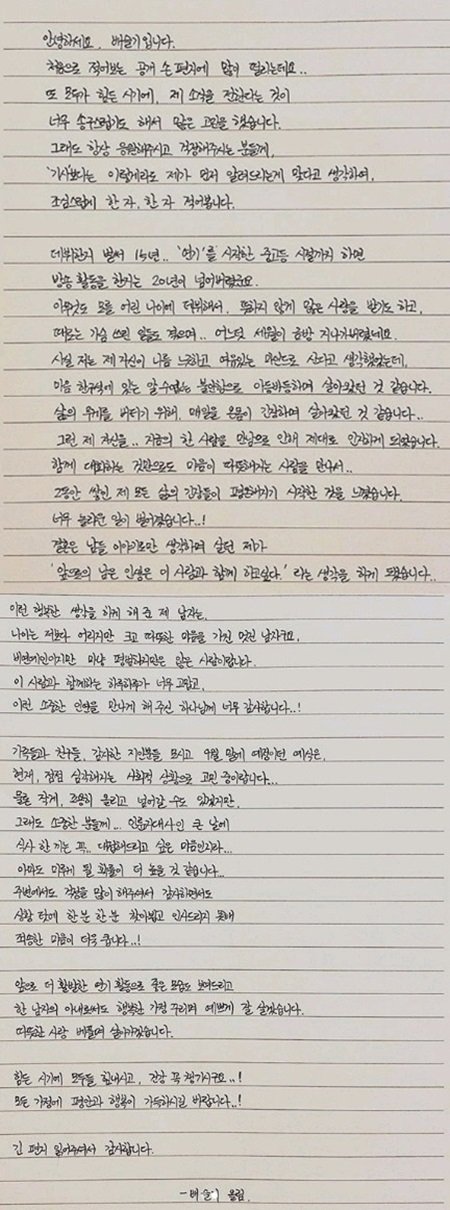 안녕하세요, 배슬기입니다.
처음으로 적어보는 공개 손편지에 많이 떨리는데요..
또 모두가 힘든 시기에, 제 소식을 전한다는 것이
너무 송구스럽기도 해서 많은 고민을 했습니다.
그래도 항상 응원해주시고 걱정해주시는 분들께,
'기사보다는 이렇게라도 제가 먼저 알려드리는게 맞다고 생각하여,
조심스럽게 한 자, 한 자 적어봅니다.
데뷔한지 벌써 15년.. '연기'를 시작한 중고등 시절까지 하면
방송 활동을 한지는 20년이 넘어버렸군요.
아무것도 모를 어린 나이에 데뷔해서, 뜻하지 않게 많은 사랑을 받기도 하고,
때로는 가슴 쓰린 일들도 겪으며.. 어느덧 세월이 금방 지나가버렸네요.
사실 저는 제 자신이 나름 느긋하고 여유있는 마인드로 산다고 생각했었는데,
마음 한구석에 있는 알 수 없는 불안함으로 아등바등하며 살아왔던 것 같습니다.
삶의 무게를 버티기 위해, 매일을 온몸이 긴장하며 살아왔던 것 같습니다..
그런 제 자신을.. 지금의 한 사람을 만남으로 인해 제대로 인지하게 되었습니다.
함께 대화하는 것만으로도 마음이 따뜻해지는 사람을 만나서..
그동안 쌓인 제 모든 삶의 긴장들이 평온해지기 시작한 것을 느꼈습니다.
너무 놀라운 일이 벌어졌습니다..!
결혼은 남들 이야기로만 생각하며 살던 제가
'앞으로의 남은 인생은 이 사람과 함께 하고싶다.' 라는 생각을 하게 되었습니다..
이런 행복한 생각을 하게 해 준 제 남자는,
나이는 저보다 어리지만 크고 따뜻한 마음을 가진 멋진 남자구요,
비연예인이지만 마냥 평범하지만은 않은 사람이랍니다.
이 사람과 함께하는 하루하루가 너무 고맙고,
이런 소중한 인연을 만나게 해 주신 하나님께 너무 감사합니다..!
가족들과 친구들, 감사한 지인분들 모시고 9월 말에 예정이던 예식은,
현재, 점점 심각해지는 사회적 상황으로 고민 중이랍니다...
물론 작게, 조용히 올리고 넘어갈 수도 있겠지만,
그래도 소중한 분들께... 인륜지대사인 큰 날에
식사 한 끼는 꼭.. 대접해드리고 싶은 마음인지라...
아마도 미루게 될 확률이 더 높을 것 같습니다...
주변에서도 걱정을 많이 해주셔서 감사하면서도
상황 탓에 한 분 한 분 찾아뵙고 인사드리지 못해
죄송한 마음이 더욱 큽니다..!
앞으로 더 활발한 연기 활동으로 좋은 모습도 보여드리고
한 남자의 아내로써도 행복한 가정 꾸리며 예쁘게 잘 살겠습니다.
따뜻한 사랑 베풀며 살아가겠습니다.
힘든 시기에 모두들 힘내시고, 건강 꼭 챙기시구요..!
모든 가정에 평안과 행복이 가득하시길 바랍니다..!
긴 편지 읽어주셔서 감사합니다.
- 배슬기 올림.